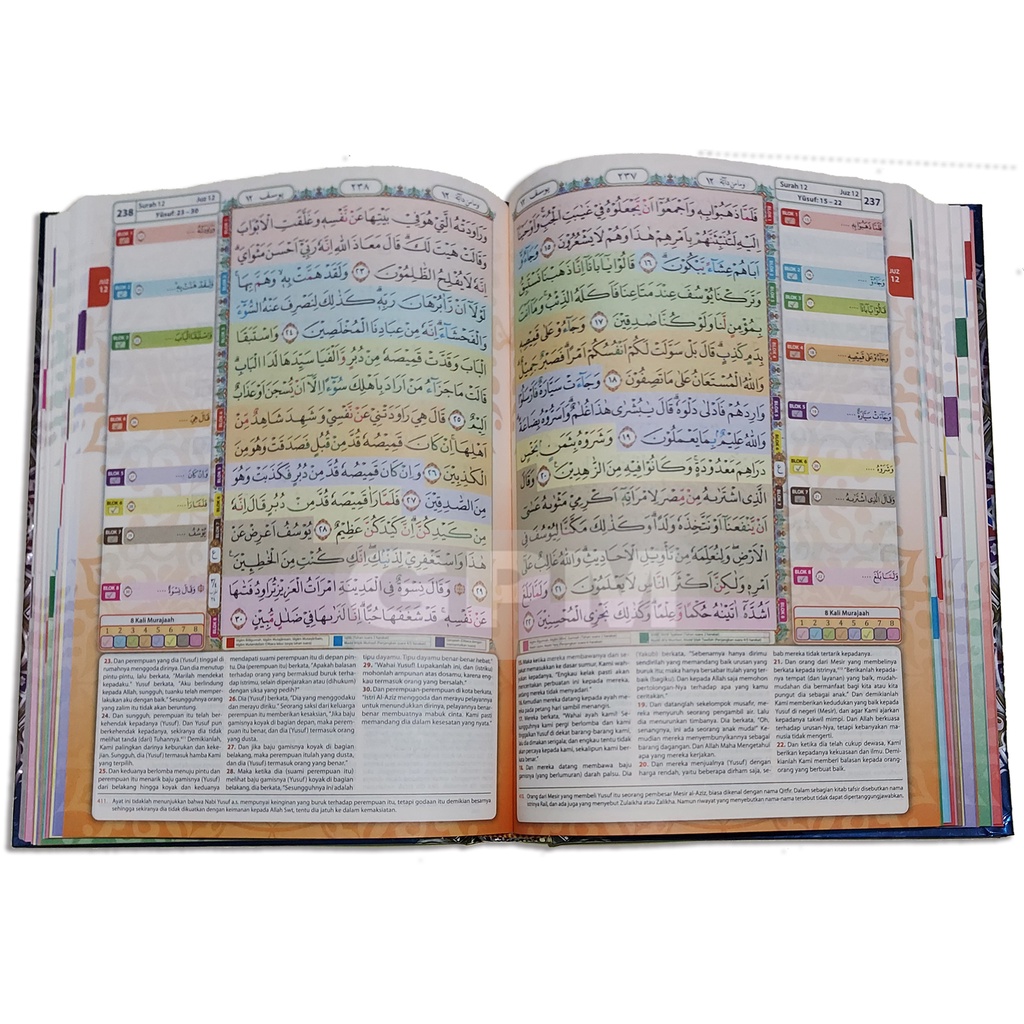 Surah 12 Juz 12
Yūsuf: 15 – 22 237
يوسف ١٢
٢٣٧
١٢
فَلَمَّا ذَهَبُوْا بِهٖ وَاَجْمَعُوْٓا اَنْ يَّجْعَلُوْهُ فِيْ غَيٰبَتِ الْجُبِّۚ وَاَوْحَيْنَآ
اِلَيْهِ لَتُنَبِّئَنَّهُمْ بِاَمْرِهِمْ هٰذَا وَهُمْ لَا يَشْعُرُوْنَ ١٥ وَجَاۤءُوْٓ
اَبَاهُمْ عِشَاۤءً يَّبْكُوْنَۗ ١٦ قَالُوْا يٰٓاَبَانَآ اِنَّا ذَهَبْنَا نَسْتَبِقُ
وَتَرَكْنَا يُوْسُفَ عِنْدَ مَتَاعِنَا فَاَكَلَهُ الذِّئْبُۚ وَمَآ اَنْتَ
بِمُؤْمِنٍ لَّنَا وَلَوْ كُنَّا صٰدِقِيْنَ ١٧ وَجَاۤءُوْ عَلٰى قَمِيْصِهٖ
بِدَمٍ كَذِبٍۗ قَالَ بَلْ سَوَّلَتْ لَكُمْ اَنْفُسُكُمْ اَمْرًاۗ فَصَبْرٌ جَمِيْلٌۗ
وَاللّٰهُ الْمُسْتَعَانُ عَلٰى مَا تَصِفُوْنَ ١٨ وَجَاۤءَتْ سَيَّارَةٌ فَاَرْسَلُوْا
وَارِدَهُمْ فَاَدْلٰى دَلْوَهٗۗ قَالَ يٰبُشْرٰى هٰذَا غُلٰمٌۗ وَاَسَرُّوْهُ بِضَاعَةًۗ
وَاللّٰهُ عَلِيْمٌ بِمَا يَعْمَلُوْنَ ١٩ وَشَرَوْهُ بِثَمَنٍ بَخْسٍ
دَرَاهِمَ مَعْدُوْدَةٍۚ وَكَانُوْا فِيْهِ مِنَ الزّٰهِدِيْنَ ٢٠ وَقَالَ
الَّذِى اشْتَرٰىهُ مِنْ مِّصْرَ لِامْرَاَتِهٖٓ اَكْرِمِيْ مَثْوٰىهُ عَسٰىٓ
اَنْ يَّنْفَعَنَآ اَوْ نَتَّخِذَهٗ وَلَدًاۗ وَكَذٰلِكَ مَكَّنَّا لِيُوْسُفَ فِى
الْاَرْضِۖ وَلِنُعَلِّمَهٗ مِنْ تَأْوِيْلِ الْاَحَادِيْثِۗ وَاللّٰهُ غَالِبٌ عَلٰٓى
اَمْرِهٖ وَلٰكِنَّ اَكْثَرَ النَّاسِ لَا يَعْلَمُوْنَ ٢١ وَلَمَّا بَلَغَ
اَشُدَّهٗٓ اٰتَيْنٰهُ حُكْمًا وَّعِلْمًاۗ وَكَذٰلِكَ نَجْزِى الْمُحْسِنِيْنَ ٢٢
BLOK 1 فَلَمَّا ذَهَبُوْا بِهٖ ....
BLOK 2 وَجَاۤءُوْٓ ....
BLOK 3 قَالُوْا يٰٓاَبَانَآ ....
BLOK 4 وَجَاۤءُوْ عَلٰى قَمِيْصِهٖ ....
BLOK 5 وَجَاۤءَتْ سَيَّارَةٌ ....
BLOK 6 وَشَرَوْهُ ....
BLOK 7 وَقَالَ الَّذِى اشْتَرٰىهُ ....
BLOK 8 وَلَمَّا بَلَغَ ....
JUZ
12
8 Kali Murajaah
1 2 3 4 5 6 7 8
15. Maka ketika mereka membawanya dan se-
memasukkan ke dasar sumur, Kami wah-
kan kepadanya, "Engkau kelak pasti
menceritakan perbuatan ini kepada mereka,
sedang mereka tidak menyadari."
datang kepada ayah me-
pada petang hari sambil menangis.
17. Mereka berkata, "Wahai ayah kami! Se-
sungguhnya kami pergi berlomba dan kami
tinggalkan Yusuf di dekat barang-barang kami,
lalu dia dimakan serigala; dan engkau tentu tidak
akan percaya kepada kami, sekalipun kami ber-
benar."
18. Dan mereka datang membawa baju
gamisnya (yang berlumuran) darah palsu. Dia
(Yakub) berkata, "Sebenarnya hanya dirimu
sendirilah yang memandang baik urusan yang
buruk itu; maka hanya bersabar itulah yang ter-
baik (bagiku). Dan kepada Allah saja memohon
pertolongan-Nya terhadap apa yang kamu
ceritakan."
19. Dan datanglah sekelompok musafir, me-
reka menyuruh seorang pengambil air. Lalu
dia menurunkan timbanya. Dia berkata, "Oh,
senangnya, ini ada seorang anak muda!" Ke-
mudian mereka menyembunyikannya sebagai
barang dagangan. Dan Allah Maha Mengetahui
apa yang mereka kerjakan.
20. Dan mereka menjualnya (Yusuf) dengan
harga rendah, yaitu beberapa dirham saja, se-
bab mereka tidak tertarik kepadanya.
21. Dan orang dari Mesir yang membelinya
berkata kepada istrinya, "Berikanlah kepada-
nya tempat (dan layanan) yang baik, mudah-
mudahan dia bermanfaat bagi kita atau kita
pungut dia sebagai anak." Dan demikianlah
Kami memberikan kedudukan yang baik kepada
Yusuf di negeri (Mesir), dan agar Kami ajarkan
kepadanya takwil mimpi. Dan Allah berkuasa
terhadap urusan-Nya, tetapi kebanyakan ma-
nusia tidak mengerti.
22. Dan ketika dia telah cukup dewasa, Kami
berikan kepadanya kekuasaan dan ilmu. Demi-
kianlah Kami memberi balasan kepada orang-
orang yang berbuat baik.
Orang dari Mesir yang membeli Yusuf itu seorang pembesar Mesir al-Aziz, biasa dikenal dengan nama Qitfir. Dalam sebagian kitab tafsir disebutkan nama
istrinya Rail, dan ada juga yang menyebut Zulaikha atau Zalikha. Namun riwayat yang menyebutkan nama-nama tersebut tidak dapat dipertanggungjawabkan.
238 Surah 12 Juz 12
Yūsuf: 23 – 30
يوسف ١٢
٢٣٨
١٢
وَرَاوَدَتْهُ الَّتِيْ هُوَ فِيْ بَيْتِهَا عَنْ نَّفْسِهٖ وَغَلَّقَتِ الْاَبْوَابَ
وَقَالَتْ هَيْتَ لَكَۗ قَالَ مَعَاذَ اللّٰهِ اِنَّهٗ رَبِّيْٓ اَحْسَنَ مَثْوَايَۗ
اِنَّهٗ لَا يُفْلِحُ الظّٰلِمُوْنَ ٢٣ وَلَقَدْ هَمَّتْ بِهٖۙ وَهَمَّ بِهَاۚ
لَوْلَآ اَنْ رَّاٰ بُرْهَانَ رَبِّهٖۗ كَذٰلِكَ لِنَصْرِفَ عَنْهُ السُّوْۤءَ
وَالْفَحْشَاۤءَۗ اِنَّهٗ مِنْ عِبَادِنَا الْمُخْلَصِيْنَ ٢٤ وَاسْتَبَقَا
الْبَابَ وَقَدَّتْ قَمِيْصَهٗ مِنْ دُبُرٍ وَّاَلْفَيَا سَيِّدَهَا لَدَا الْبَابِۗ
قَالَتْ مَا جَزَاۤءُ مَنْ اَرَادَ بِاَهْلِكَ سُوْۤءًا اِلَّآ اَنْ يُّسْجَنَ اَوْ عَذَابٌ
اَلِيْمٌ ٢٥ قَالَ هِيَ رَاوَدَتْنِيْ عَنْ نَّفْسِيْ وَشَهِدَ شَاهِدٌ مِّنْ
اَهْلِهَاۚ اِنْ كَانَ قَمِيْصُهٗ قُدَّ مِنْ قُبُلٍ فَصَدَقَتْ وَهُوَ مِنَ
الْكٰذِبِيْنَ ٢٦ وَاِنْ كَانَ قَمِيْصُهٗ قُدَّ مِنْ دُبُرٍ فَكَذَبَتْ وَهُوَ
مِنَ الصّٰدِقِيْنَ ٢٧ فَلَمَّا رَاٰ قَمِيْصَهٗ قُدَّ مِنْ دُبُرٍ قَالَ اِنَّهٗ
مِنْ كَيْدِكُنَّۗ اِنَّ كَيْدَكُنَّ عَظِيْمٌ ٢٨ يُوْسُفُ اَعْرِضْ عَنْ
هٰذَا وَاسْتَغْفِرِيْ لِذَنْۢبِكِۖ اِنَّكِ كُنْتِ مِنَ الْخٰطِـِٕيْنَ
٢٩ وَقَالَ نِسْوَةٌ فِى الْمَدِيْنَةِ امْرَاَتُ الْعَزِيْزِ تُرَاوِدُ فَتٰىهَا
عَنْ نَّفْسِهٖۚ قَدْ شَغَفَهَا حُبًّاۗ اِنَّا لَنَرٰىهَا فِيْ ضَلٰلٍ مُّبِيْنٍ ٣٠
BLOK 1 وَرَاوَدَتْهُ ....
BLOK 2 وَلَقَدْ هَمَّتْ بِهٖ ....
BLOK 3 وَاسْتَبَقَا الْبَابَ ....
BLOK 4 قَالَ هِيَ ....
BLOK 5 وَاِنْ كَانَ ....
BLOK 6 فَلَمَّا رَاٰ ....
BLOK 7 يُوْسُفُ ....
BLOK 8 وَقَالَ نِسْوَةٌ ....
JUZ
12
8 Kali Murajaah
1 2 3 4 5 6 7 8
23. Dan perempuan yang dia (Yusuf) tinggal di
rumahnya menggoda dirinya. Dan dia menutup
pintu-pintu, lalu berkata, "Marilah mendekat
kepadaku." Yusuf berkata, "Aku berlindung
kepada Allah, sungguh, tuanku telah memper-
lakukan aku dengan baik." Sesungguhnya orang
yang zalim itu tidak akan beruntung.
24. Dan sungguh, perempuan itu telah ber-
kehendak kepadanya (Yusuf). Dan Yusuf pun
berkehendak kepadanya, sekiranya dia tidak
melihat tanda (dari) Tuhannya. Demikianlah,
Kami palingkan darinya keburukan dan keke-
jian. Sungguh, dia (Yusuf) termasuk hamba Kami
yang terpilih.
25. Dan keduanya berlomba menuju pintu dan
perempuan itu menarik baju gamisnya (Yusuf)
dari belakang hingga koyak dan keduanya
mendapati suami perempuan itu di depan pin-
tu. Dia (perempuan itu) berkata, "Apakah balasan
terhadap orang yang bermaksud buruk terha-
dap istrimu, selain dipenjarakan atau (dihukum)
dengan siksa yang pedih?"
26. Dia (Yusuf) berkata, "Dia yang menggodaku
dan merayu diriku." Seorang saksi dari keluarga
perempuan itu memberikan kesaksian, "Jika baju
gamisnya koyak di bagian depan, maka perem-
puan itu benar, dan dia (Yusuf) termasuk orang
yang dusta.
27. Dan jika baju gamisnya koyak di bagian
belakang, maka perempuan itulah yang dusta,
dan dia (Yusuf) termasuk orang yang benar."
28. Maka ketika dia (suami perempuan itu)
melihat baju gamisnya (Yusuf) koyak di bagian
belakang, dia berkata, "Sesungguhnya ini adalah
tipu dayamu. Tipu dayamu benar-benar hebat."
29. "Wahai Yusuf! Lupakanlah ini, dan (istriku)
mohonlah ampunan atas dosamu, karena eng-
kau termasuk orang yang bersalah."
30. Dan perempuan-perempuan di kota berkata,
"Istri Al-Aziz menggoda dan merayu pelayannya
untuk menundukkan dirinya, pelayannya benar-
benar membuatnya mabuk cinta. Kami pasti
memandang dia dalam kesesatan yang nyata."
411. Ayat ini tidaklah menunjukkan bahwa Nabi Yusuf a.s. mempunyai keinginan yang buruk terhadap perempuan itu, tetapi godaan itu demikian besarnya
sehingga sekiranya dia tidak dikuatkan dengan keimanan kepada Allah Swt, tentu dia jatuh ke dalam kemaksiatan.